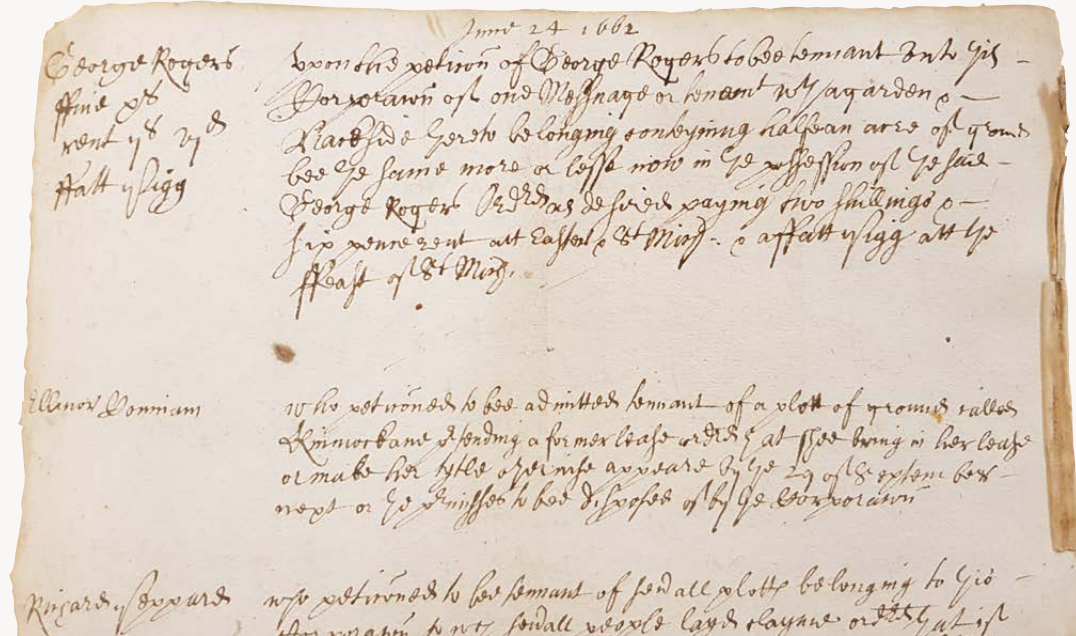 June 24 1662
George Rogers
ffine xs
rent ijs vjd
ffatt pigg
Upon the peticon of George Rogers to bee tennant unto this
Corporacon of one Messuage or tenemt wth a garden &
Backside hereto belonging conteyning halfe an acre of ground
bee ye same more or lesse now in ye possession of ye said
George Rogers Ordrd as desired paying two shillings &
six pence rent att Easter & St Mich: & a ffatt pigg att ye
ffeast of St Mich.
Ellinor Donniam
who peticoned to bee admitted tennant of a plott of ground called
prtending a former lease ordrd yt shee bring in her lease
or make her tytle otherwise appeare by ye 29 of September
next or ye prmisses to bee disposed of by ye Corporacon
Richard Sheppard
who peticoned to bee tennant of sevrall plotts belonging to this
Corporacon to wch sevrall people layd clayme ordrd yt it is